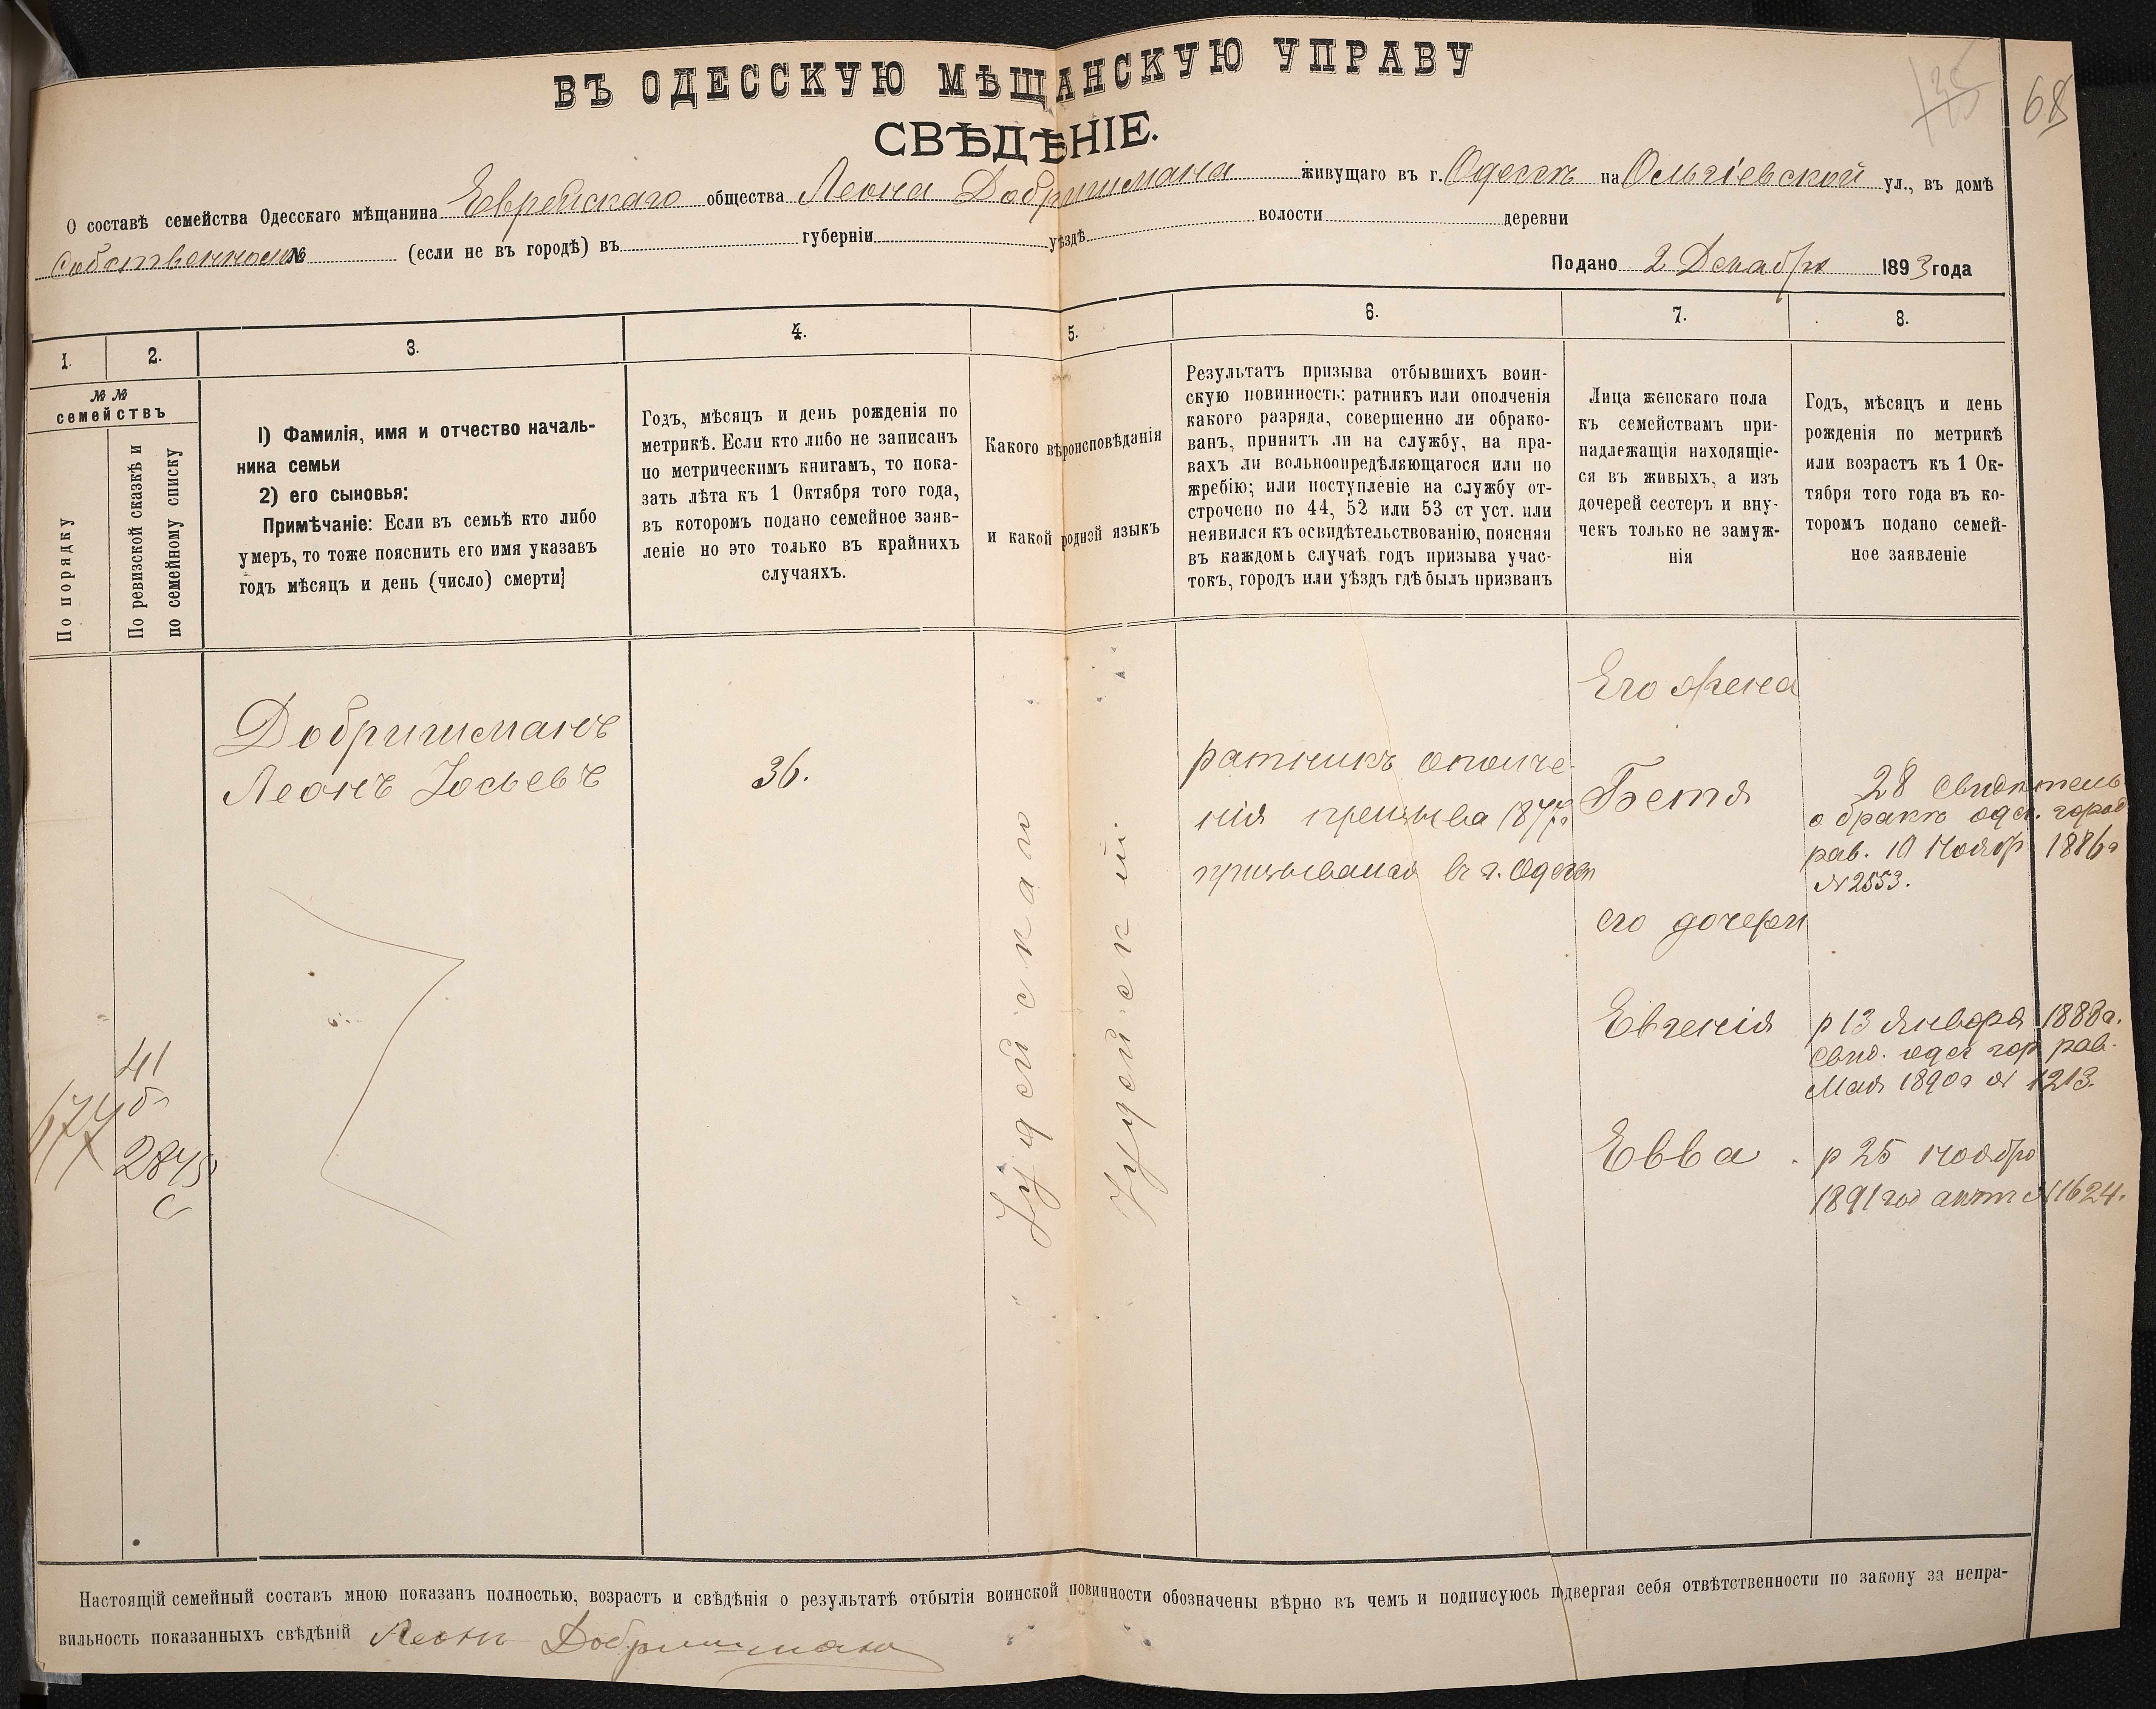 ВЪ ОДЕССКУЮ МѢЩАНСКУЮ УПРАВУ
СВѢДѢНІЕ.
135
68
О составѣ семейства Одесскаго мѣщанина Еврейскаго общества Леона Добришмана живущаго въ г. Одессѣ на Ольгіевской ул., въ домѣ
Собственномъ № (если не въ городѣ) въ губерніи уѣздѣ волости деревни
Подано 2 Декабря 1893 года
1. 2. 3. 4. 5. 6. 7. 8.
№ №
семействъ
По порядку
По ревизской сказкѣ и
по семейному списку
1) Фамилія, имя и отчество началь-
ника семьи
2) его сыновья:
Примѣчаніе: Если въ семьѣ кто либо
умеръ, то тоже пояснить его имя указавъ
годъ мѣсяцъ и день (число) смерти]
Годъ, мѣсяцъ и день рожденія по
метрикѣ. Если кто либо не записанъ
по метрическимъ книгамъ, то пока-
зать лѣта къ 1 Октября того года,
въ которомъ подано семейное заяв-
леніе но это только въ крайнихъ
случаяхъ.
Какого вѣроисповѣданія
и какой родной языкъ
Результатъ призыва отбывшихъ воин-
скую повинность: ратникъ или ополченія
какого разряда, совершенно ли обрако-
ванъ, принятъ ли на службу, на пра-
вахъ ли вольноопредѣляющагося или по
жребію; или поступленіе на службу от-
строчено по 44, 52 или 53 ст уст. или
неявился къ освидѣтельствованію, поясняя
въ каждомъ случаѣ годъ призыва учас-
токъ, городъ или уѣздъ гдѣ былъ призванъ
Лица женскаго пола
къ семействамъ при-
надлежащія находящіе-
ся въ живыхъ, а изъ
дочерей сестеръ и вну-
чекъ только не замуж-
нія
Годъ, мѣсяцъ и день
рожденія по метрикѣ
или возрастъ къ 1 Ок-
тября того года въ ко-
торомъ подано семей-
ное заявленіе
41
2845
Добришманъ
Леонъ Іосьевъ
36.
Іудейскаго
Іудейскій
ратникъ ополче-
нія призыва 1877г
призывался въ г. Одессѣ
Его жена
Бетя
28 Свидѣтель
о бракѣ одес. город
рав. 10 Ноябр 1886г
№ 2553.
его дочери
Евгенія
р 13 Января 1888г.
Свид. одес гор рав.
Мая 1890г № 1213.
Евва
р 25 Ноября
1891 год актъ № 1624.
Настоящій семейный составъ мною показанъ полностью, возрастъ и свѣдѣнія о результатѣ отбытія воинской повинности обозначены вѣрно въ чемъ и подписуюсь подвергая себя отвѣтственности по закону за непра-
вильность показанныхъ свѣдѣній Леонъ Добришманъ